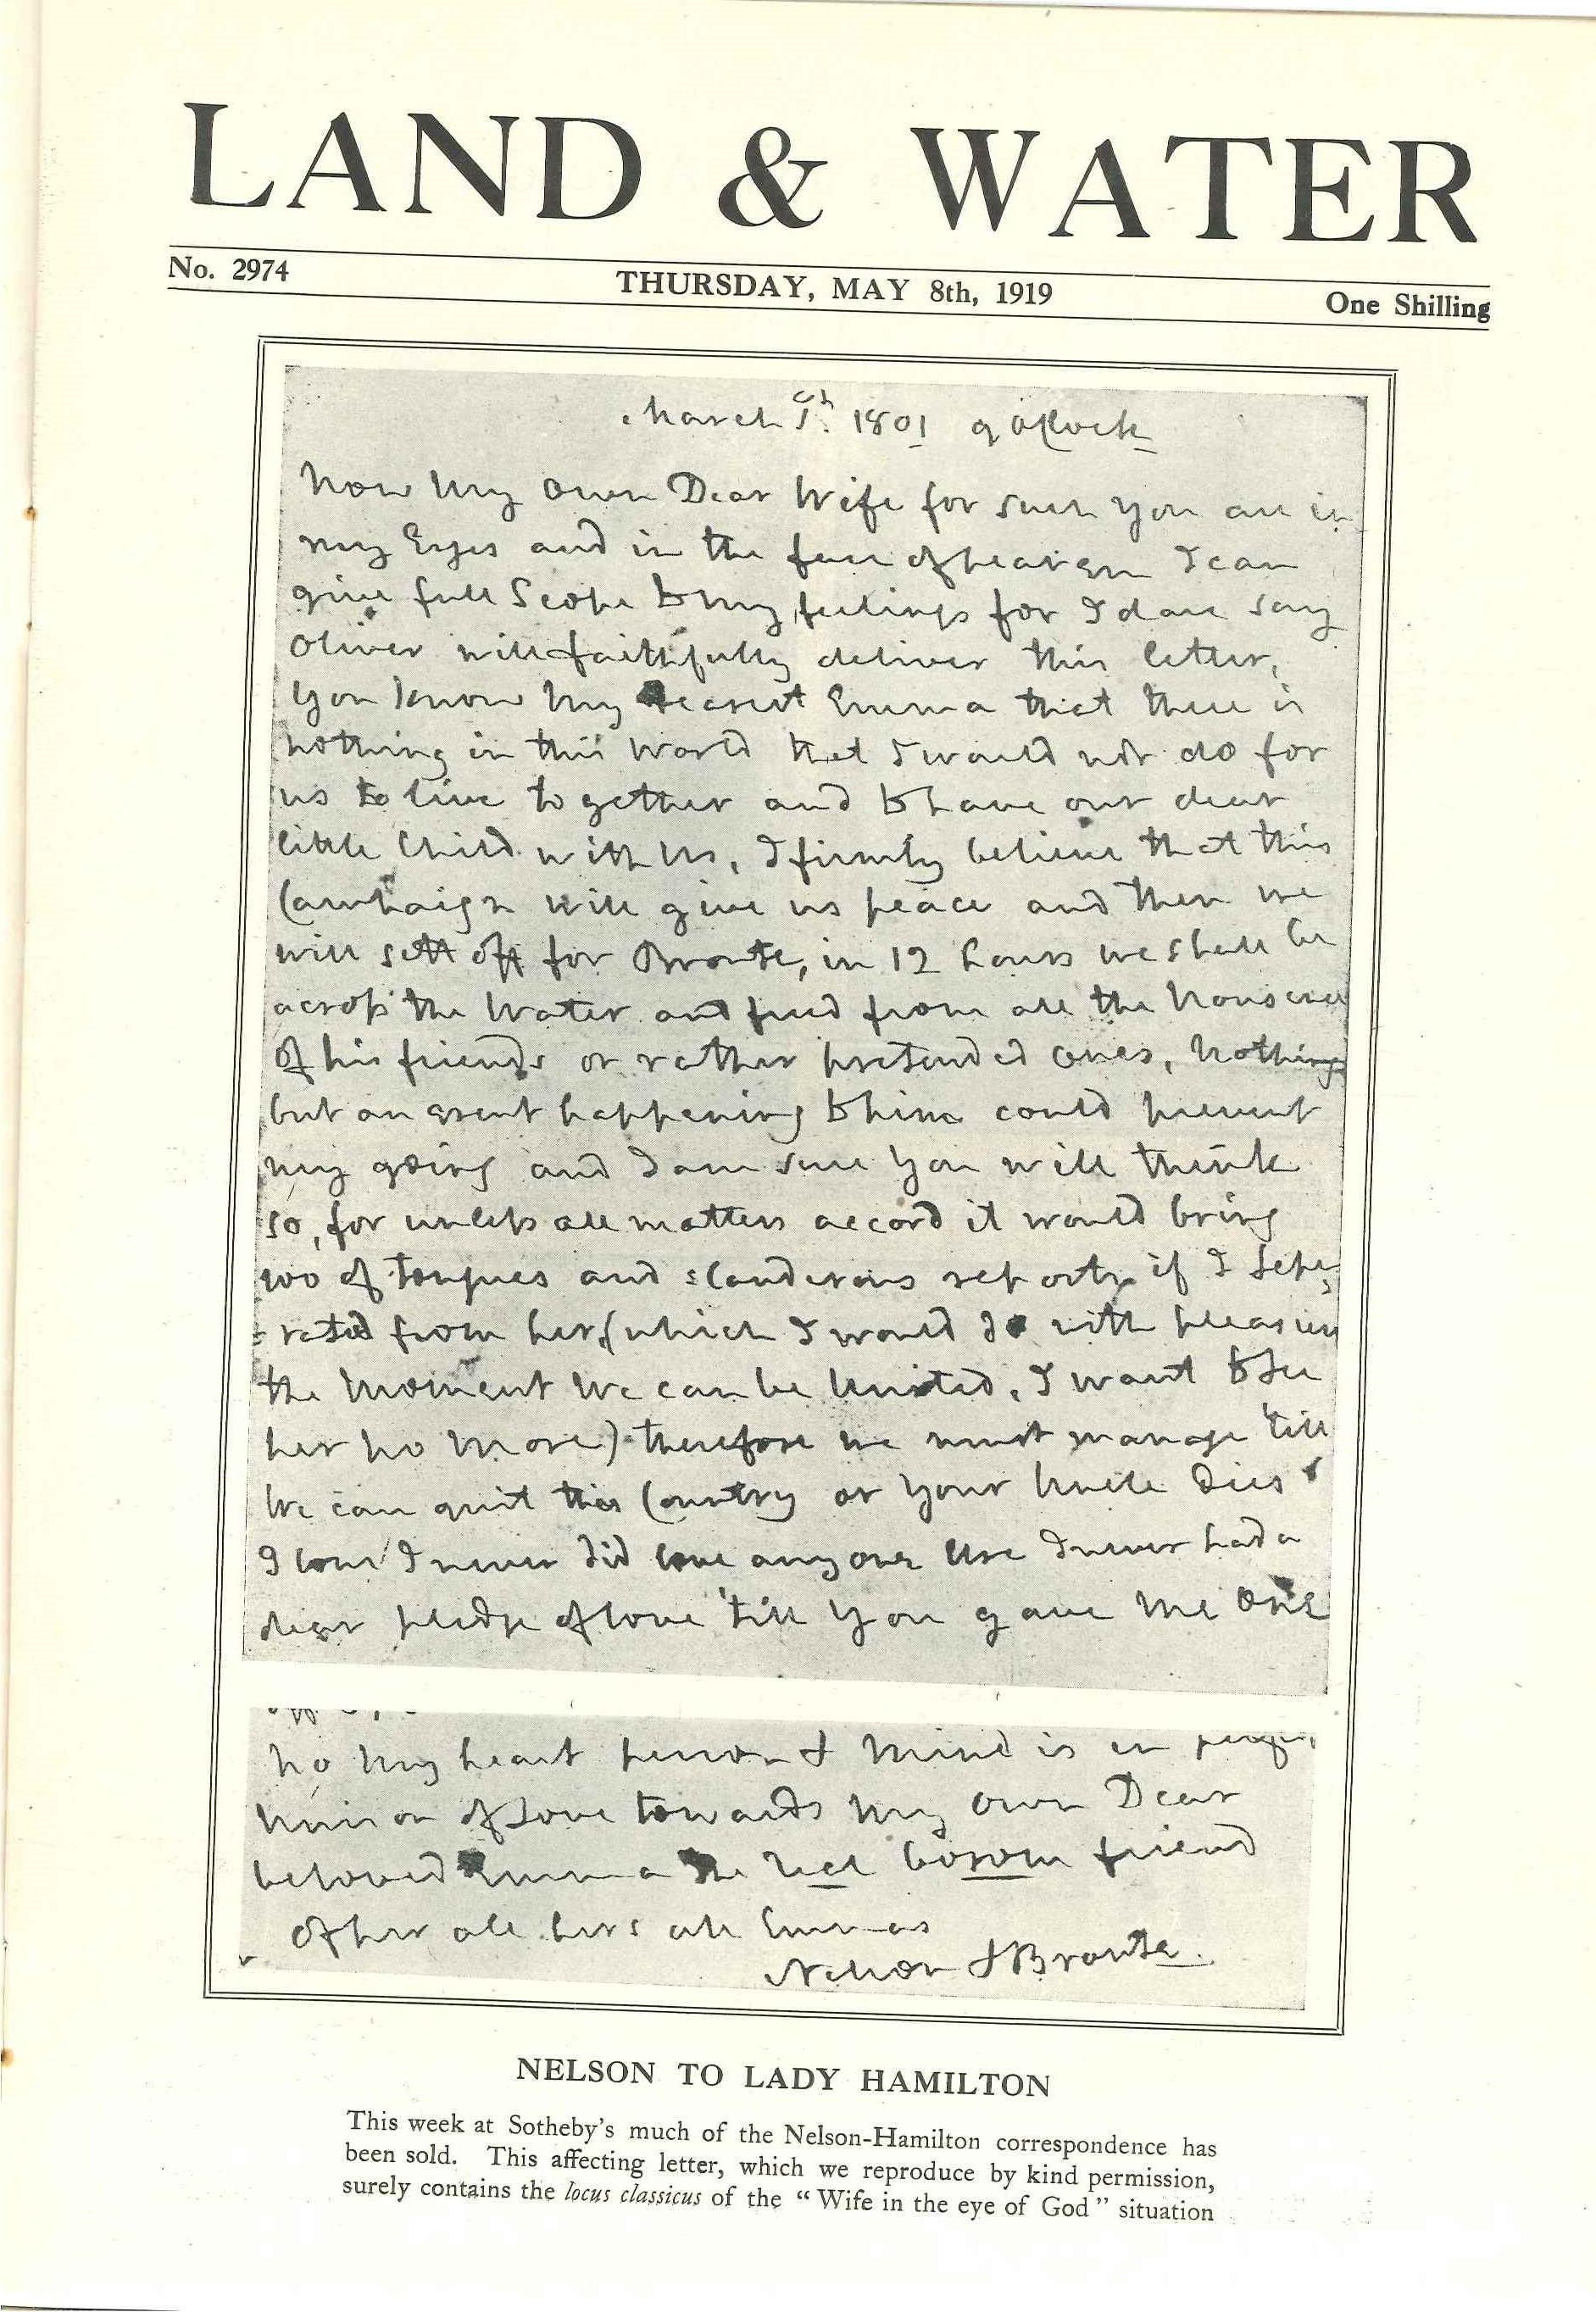 LAND & WATER
No. 2974 THURSDAY, MAY 8th, 1919 One Shilling
March 1st. 1801 9 oClock
Now My Own Dear Wife for such you are in
my Eyes and in the face of heaven I can
give full Scope to my feelings for I dare say
Oliver will faithfully deliver this letter,
You know My Dearest Emma that there is
nothing in this World that I would not do for
us to live together and to have our dear
little Child with Us, I firmly believe that this
Campaign will give us peace and then we
will sett off for Bronte, in 12 hours we shall be
across the Water and freed from all the Nonsence
of his friends or rather pretended ones, Nothing
but an event happening to him could prevent
my going and I am sure You will think
so, for unless all matters accord it would bring
100 of tongues and slanderous reports if I sepe
=rated from her, (which I would do with pleasure
the Moment We can be United, I want to see
her no More) therefore we must manage 'till
We can quit this Country or Your Uncle Dies
I love I never did love any one Else I never had a
dear pledge of love 'till You gave Me One
No My heart person & Mind is in
Union of Love towards My Own Dear
beloved Emma the real bosom friend
Of her all hers all Emmas
Nelson & Bronte.
NELSON TO LADY HAMILTON
This week at Sotheby's much of the Nelson-Hamilton correspondence has
been sold. This affecting letter, which we reproduce by kind permission,
surely contains the locus classicus of the "Wife in the eye of God" situation